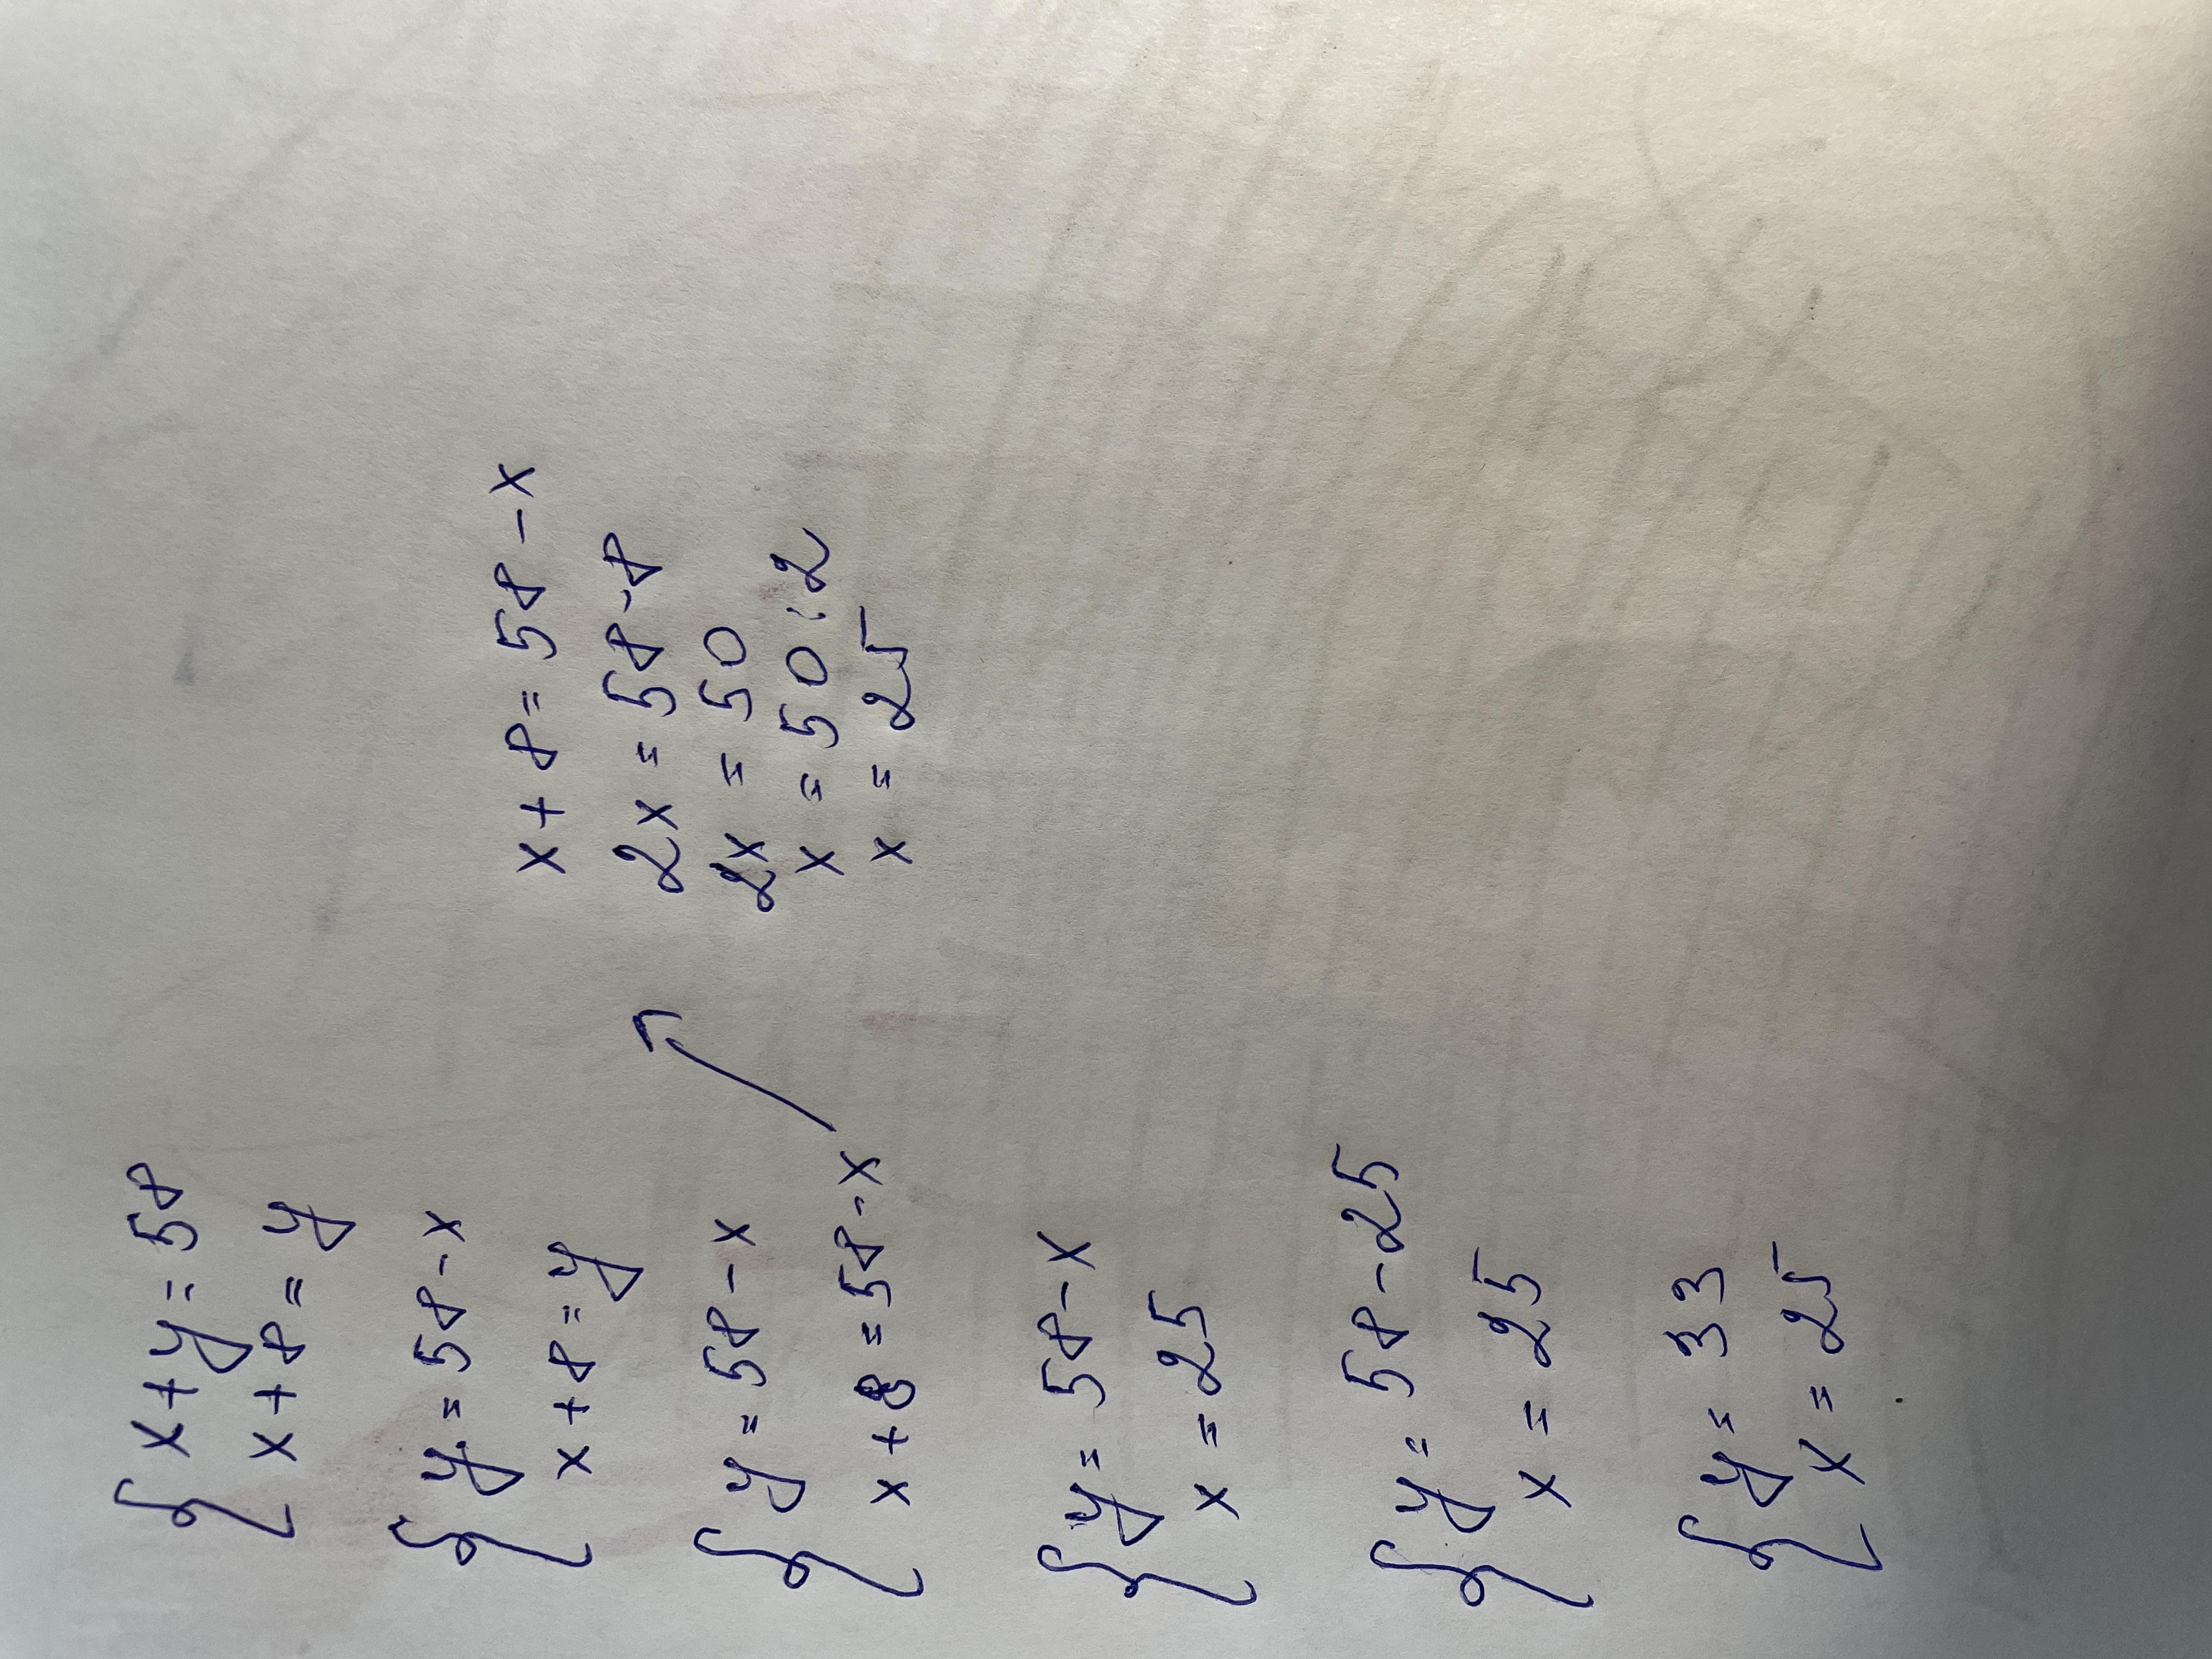 { x + y = 58
x + 8 = y
{ y = 58 - x
x + 8 = y
{ y = 58 - x
x + 8 = 58 - x
x + 8 = 58 - x
2x = 58 - 8
2x = 50
x = 50 : 2
x = 25
{ y = 58 - x
x = 25
{ y = 58 - 25
x = 25
{ y = 33
x = 25